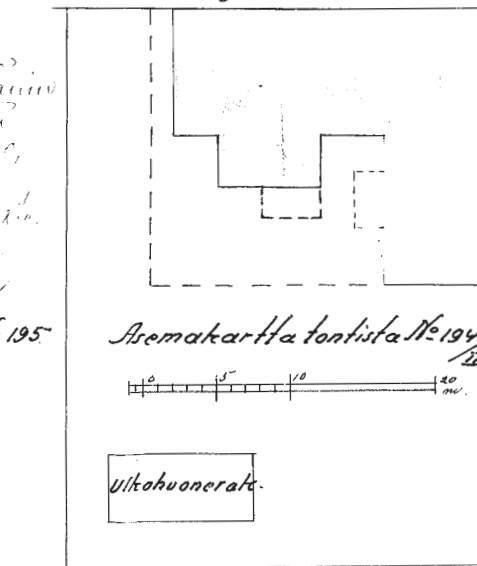 195.
Asemakartta tontista № 194
II
0 5 10 20
m.
Ulkohuonerak.